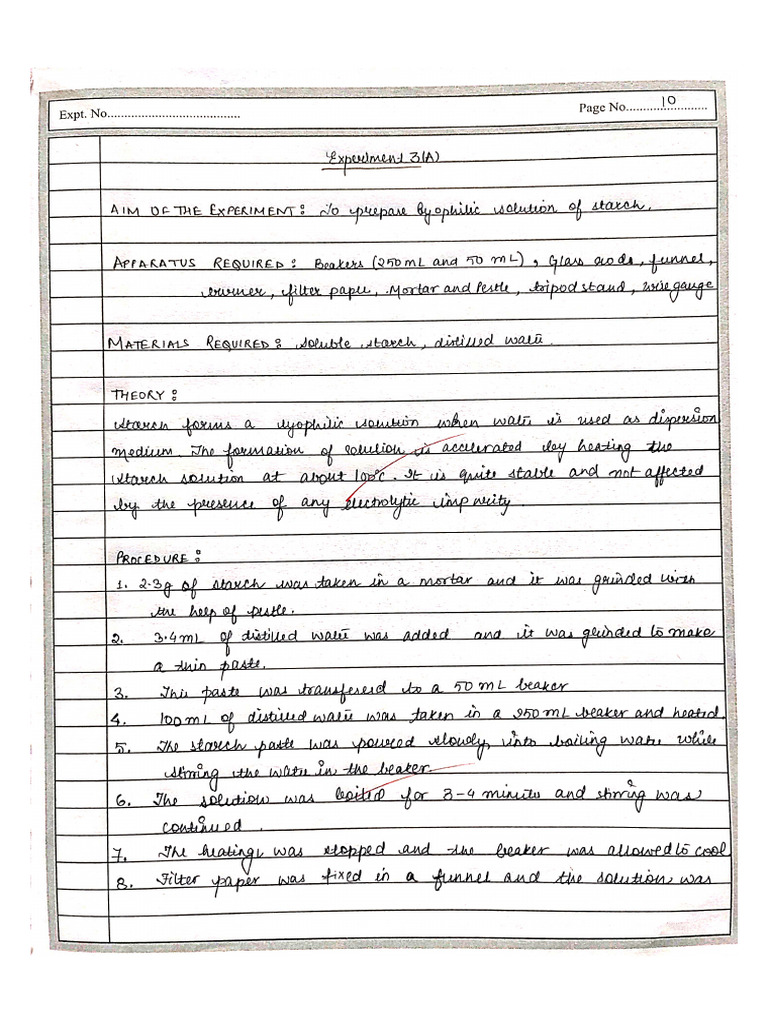 Expt. No.......................................
Page No. 10
Experiment 3(A)
AIM OF THE EXPERIMENT: To prepare lyophilic solution of starch.
APPARATUS REQUIRED: Beakers (250 mL and 50 mL), Glass rods, funnel,
burner, filter paper, Mortar and Pestle, tripod stand, wire gauge
MATERIALS REQUIRED: Soluble starch, distilled water.
THEORY:
Starch forms a lyophilic solution when water is used as dispersion
medium. The formation of solution is accelerated by heating the
starch solution at about 100°C. It is quite stable and not affected
by the presence of any electrolytic impurity.
PROCEDURE:
1. 2.3g of starch was taken in a mortar and it was grinded with
the help of pestle.
2. 3.4mL of distilled water was added and it was grinded to make
a thin paste.
3. This paste was transfered to a 50 mL beaker
4. 100mL of distilled water was taken in a 250 mL beaker and heated.
5. The starch paste was poured slowly into boiling water while
stirring the water in the beaker.
6. The solution was boiled for 3-4 minutes and stirring was
continued.
7. The heating was stopped and the beaker was allowed to cool
8. Filter paper was fixed in a funnel and the solution was